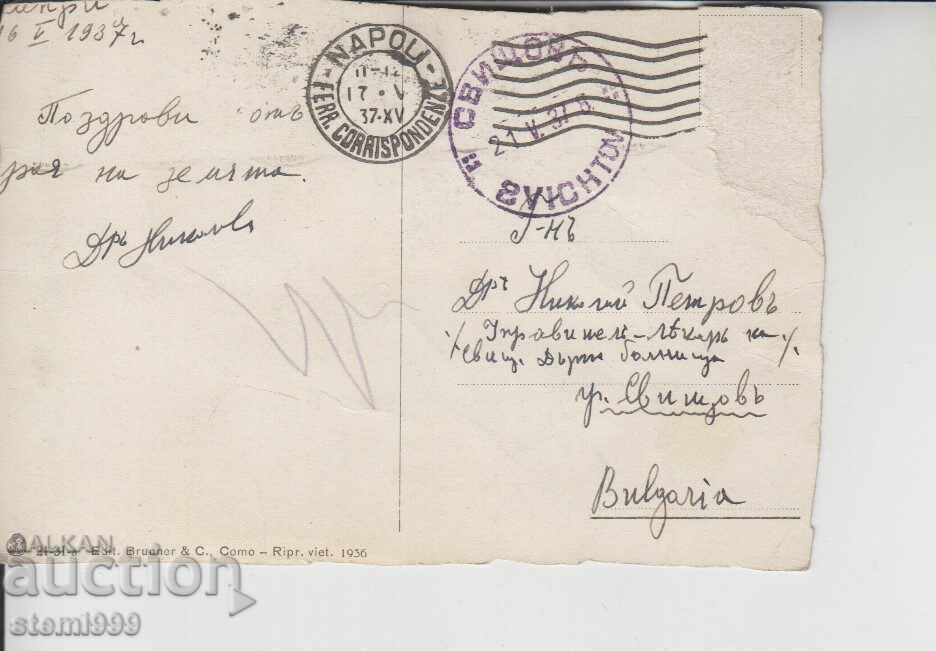 16 V 1937 г
Поздрави отъ
рая на земята.
Дръ Николовъ
NAPOLI
FERR. CORRISPONDENZE
11-12
17 · V
37·XV
СВИЩОВЪ
21 V. 37
SVICHTOV
Г-нъ
Дръ Николай Петровъ
Управител-лѣкарь на
Свищ. Държ болница
гр. Свищовъ
Bulgaria
21-31-
Edit. Brunner & C., Como – Ripr. viet. 1936
BALKAN
auction
stemi999